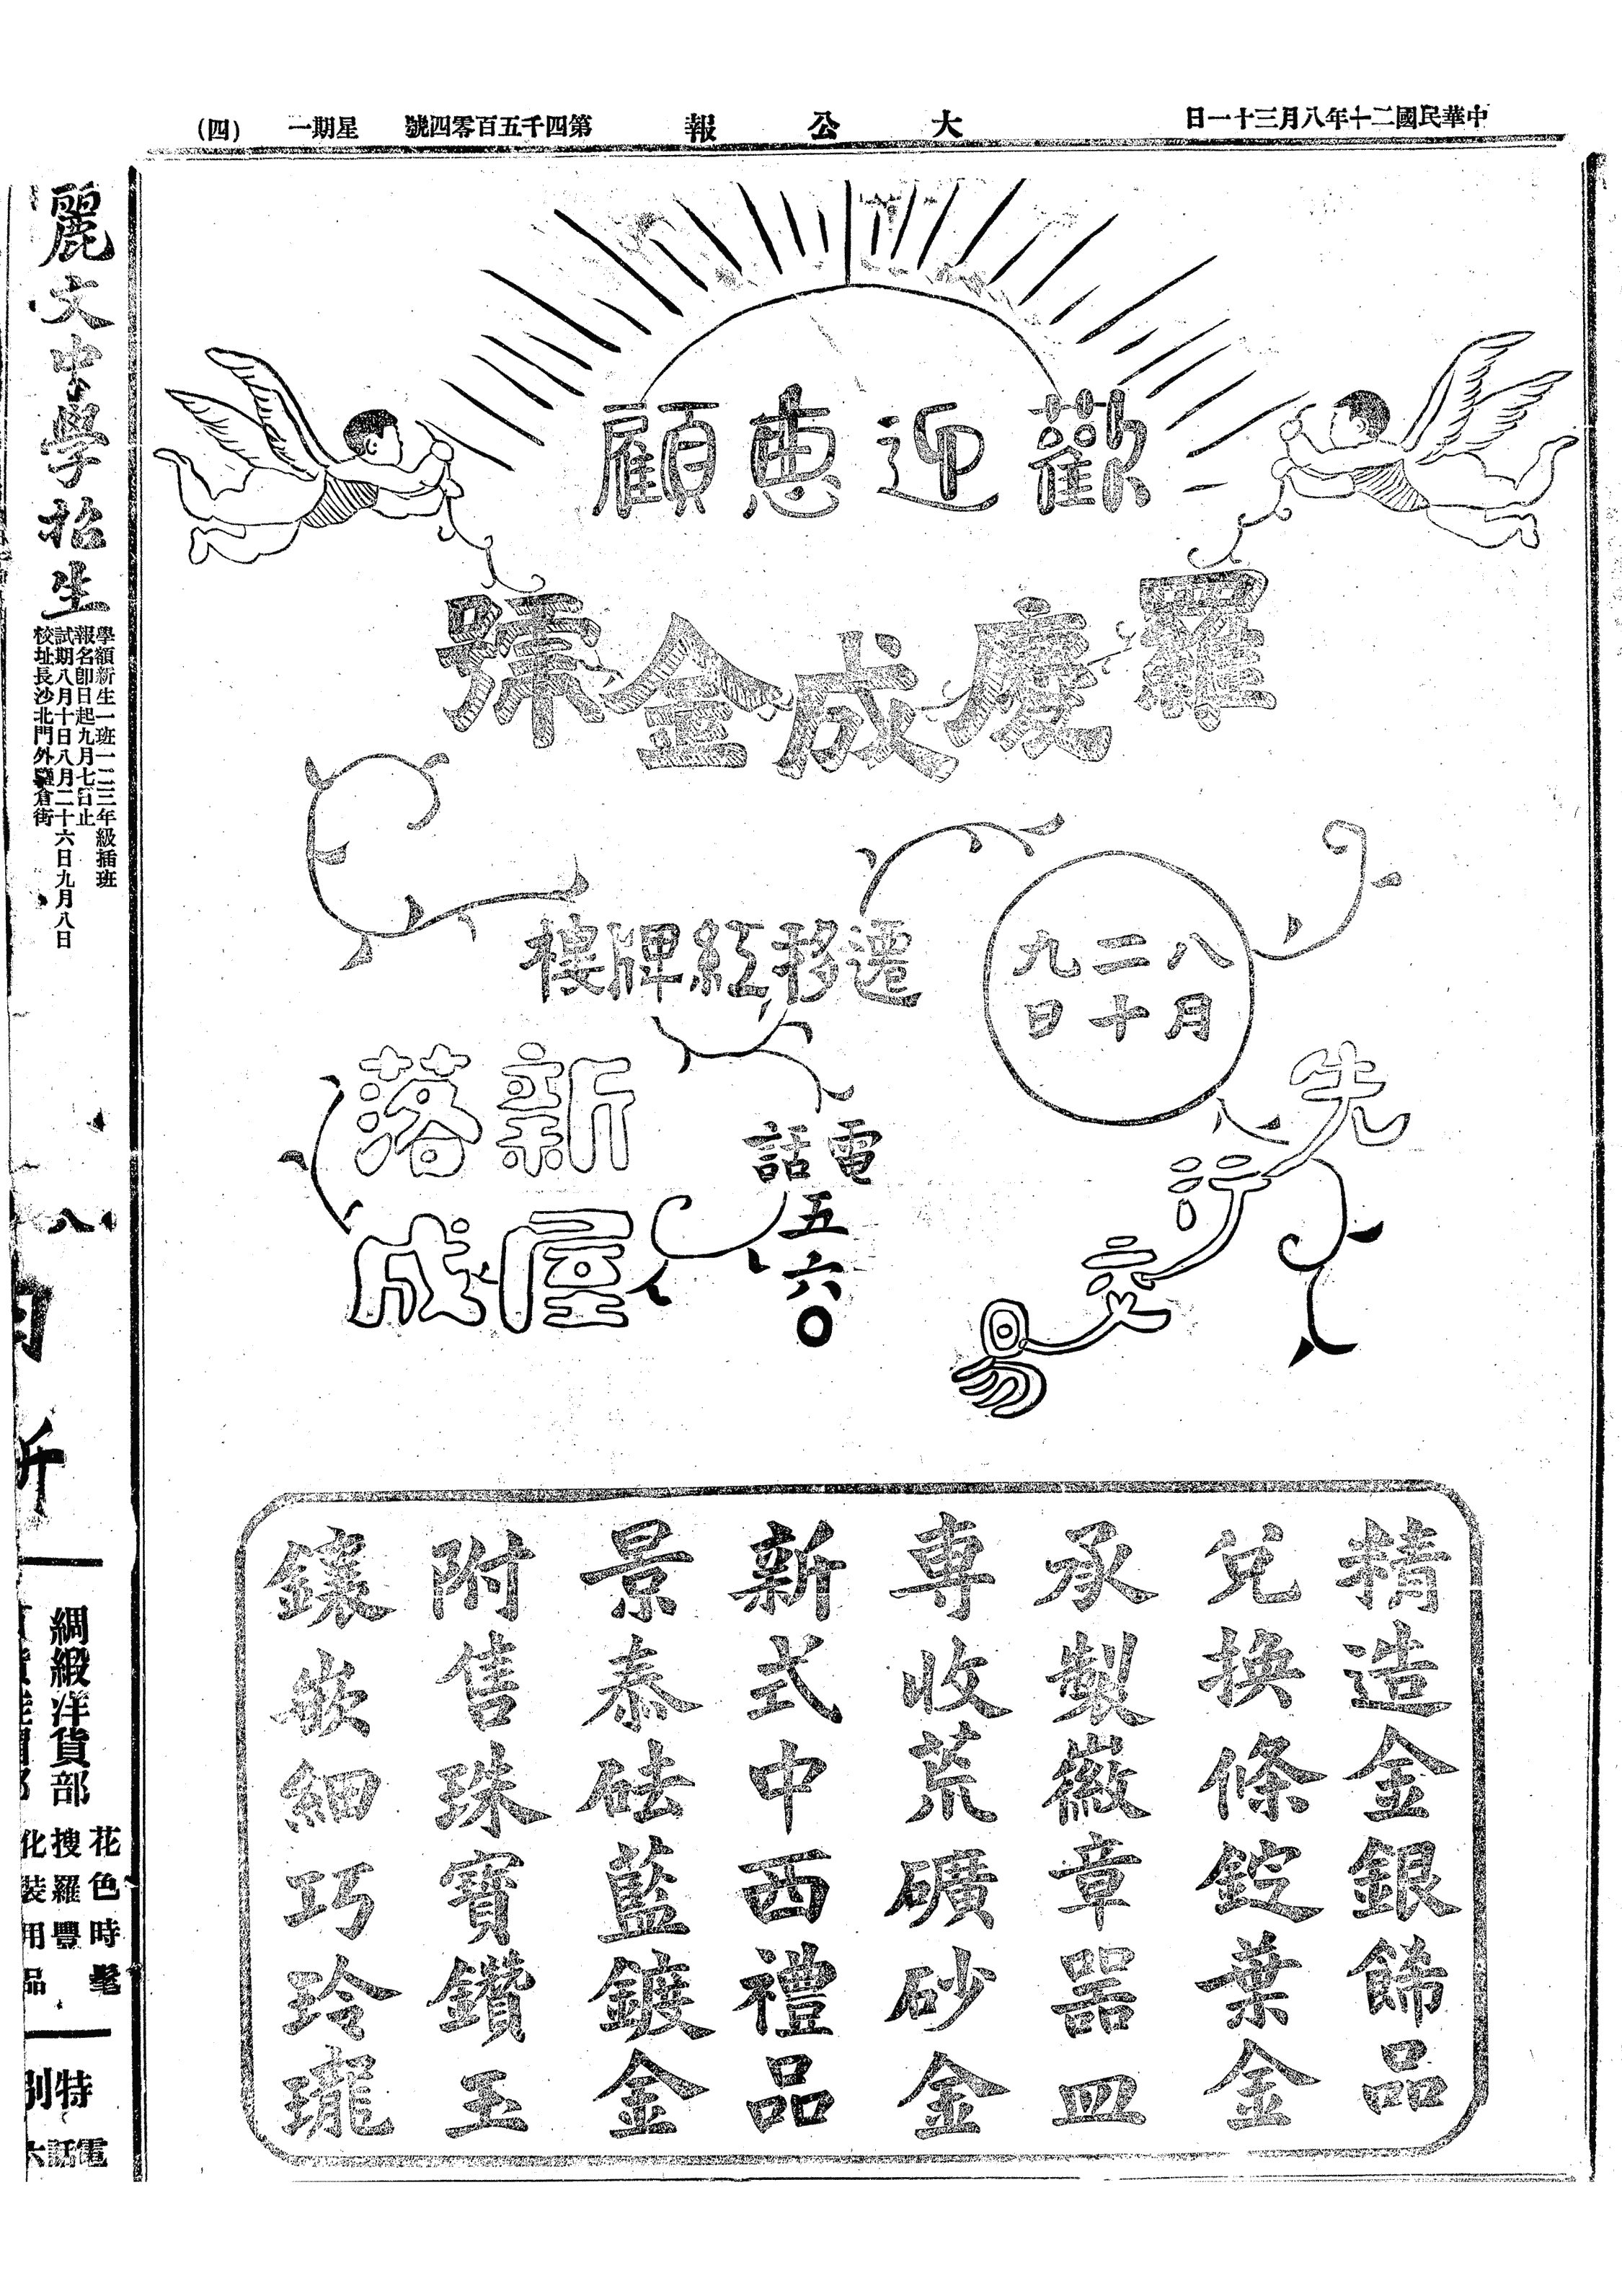 中華民國二十年八月三十一日
大公報
第四千五百零四號
星期一
(四)
歡迎惠顧
羅慶成金號
八月二十九日
遷移紅牌樓
新屋落成
先行交易
電話五六〇
精造金銀飾品
兌換條錠葉金
承製徽章器皿
專收荒礦砂金
新式中西禮品
景泰砝藍鍍金
附售珠寶鑽玉
鑲嵌細巧玲瓏
麗文中學招生
學額新生一班一二三年級插班
報名卽日起九月七日止
試期八月十日八月二十六日九月八日
校址長沙北門外鹽倉街
八
綢緞洋貨部
花色時髦
搜羅豐
化裝用品
特別
電話六